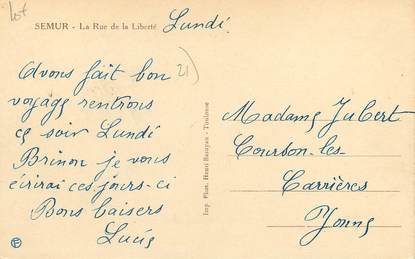 lot
SEMUR - La Rue de la Liberté
Lundi
21
Avons fait bon
voyage rentrons
ce soir Lundi
Brinon je vous
écrirai ces jours-ci
Bons baisers
Lucie
Imp. Phot. Henri Basuyau - Toulouse
Madame Jubert
Courson-les-
Carrières
Yonne